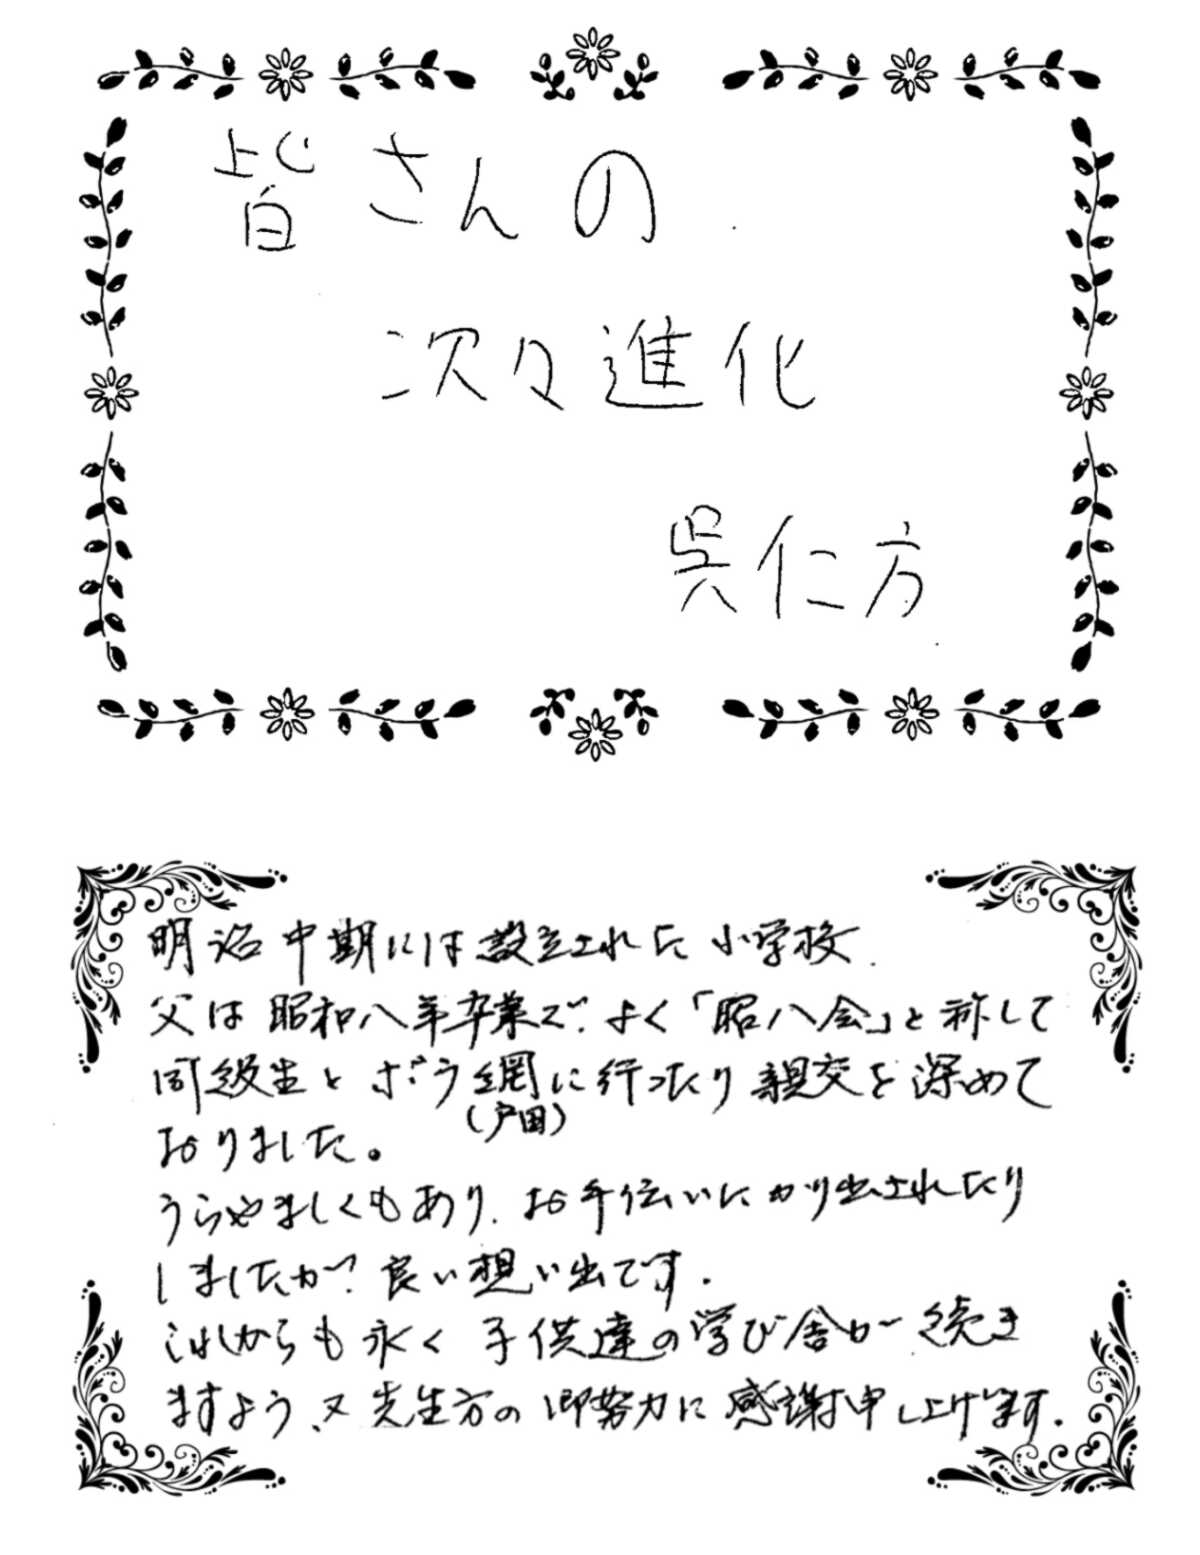 皆さんの
次々進化
呉仁方
明治中期には設立された小学校
父は昭和八年卒業で、よく「昭八会」と称して
同級生とボラ網に行ったり親交を深めて
(戸田)
おりました。
うらやましくもあり、お手伝いにかり出されたり
しましたが、良い想い出です。
これからも永く子供達の学び舎が続き
ますよう、又先生方の御努力に感謝申し上げます。